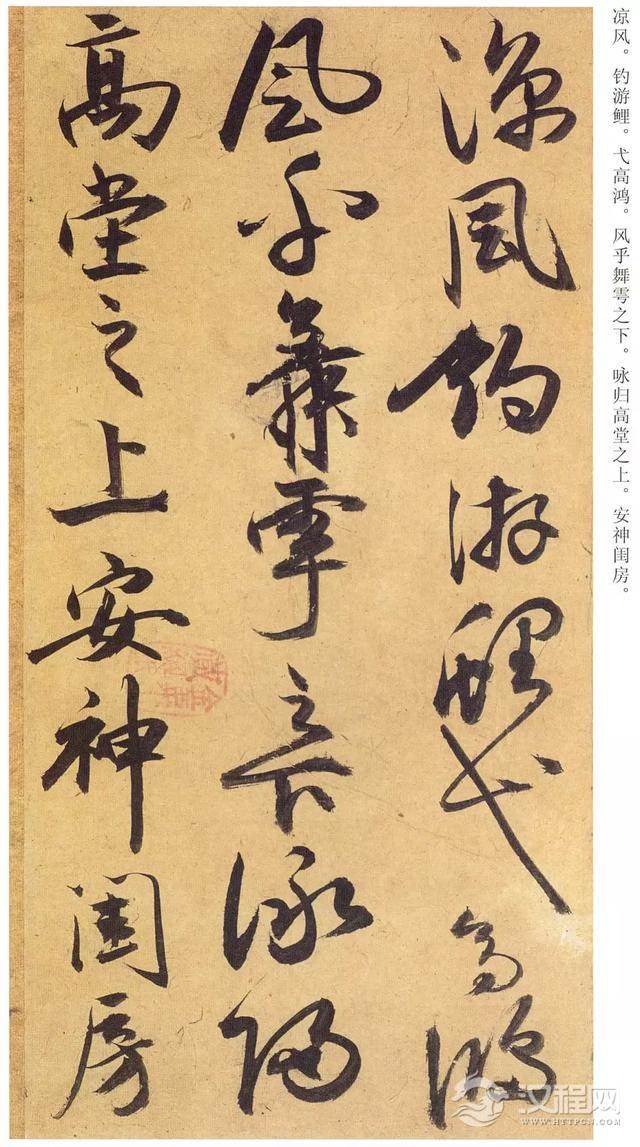 凉风。钓游鲤。弋高鸿。风乎舞雩之下。咏归高堂之上。安神闺房。
涼風釣游鯉弋高鴻
風乎舞雩之下詠歸
高堂之上安神閨房
汉程网
HTTPCN.COM